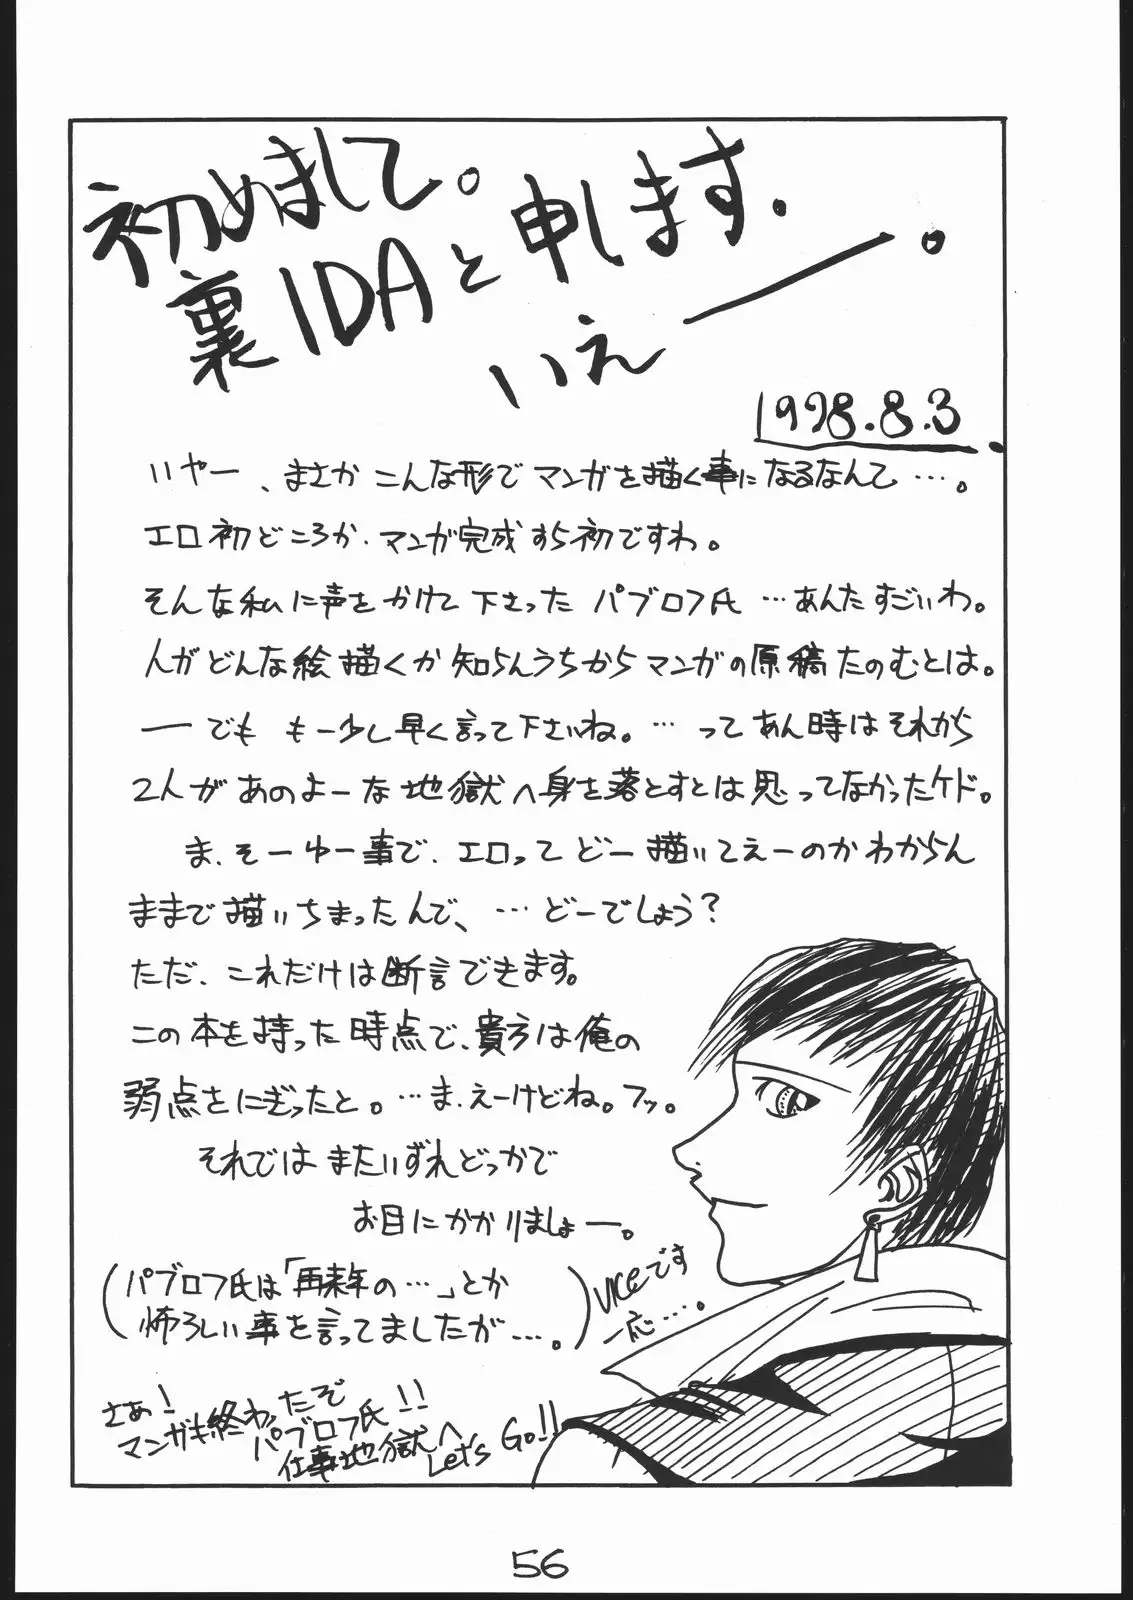 初めまして。
裏IDAと申します.
いえー。
1998.8.3.
いやー、まさかこんな形でマンガを描く事になるなんて…。
エロ初どころか、マンガ完成すら初ですわ。
そんな私に声をかけて下さったパブロフ氏…あんたすごいわ。
人がどんな絵描くか知らんうちからマンガの原稿たのむとは。
―でも もー少し早く言って下さいね。…ってあん時はそれから
2人があのよーな地獄へ身を落とすとは思ってなかったケド。
ま、そーゆー事で、エロってどー描いてえーのかわからん
ままで描いちまったんで、…どーでしょう?
ただ、これだけは断言できます。
この本を持った時点で、貴方は俺の
弱点をにぎったと。…ま、えーけどね。フッ。
それではまたいずれどっかで
お目にかかりましょー。
(パブロフ氏は「再来年の…」とか
怖ろしい事を言ってましたが…。)
VICEです
一応…。
さぁ!
マンガも終わったぞ
パブロフ氏!!
仕事地獄へ
Let's Go!!
56